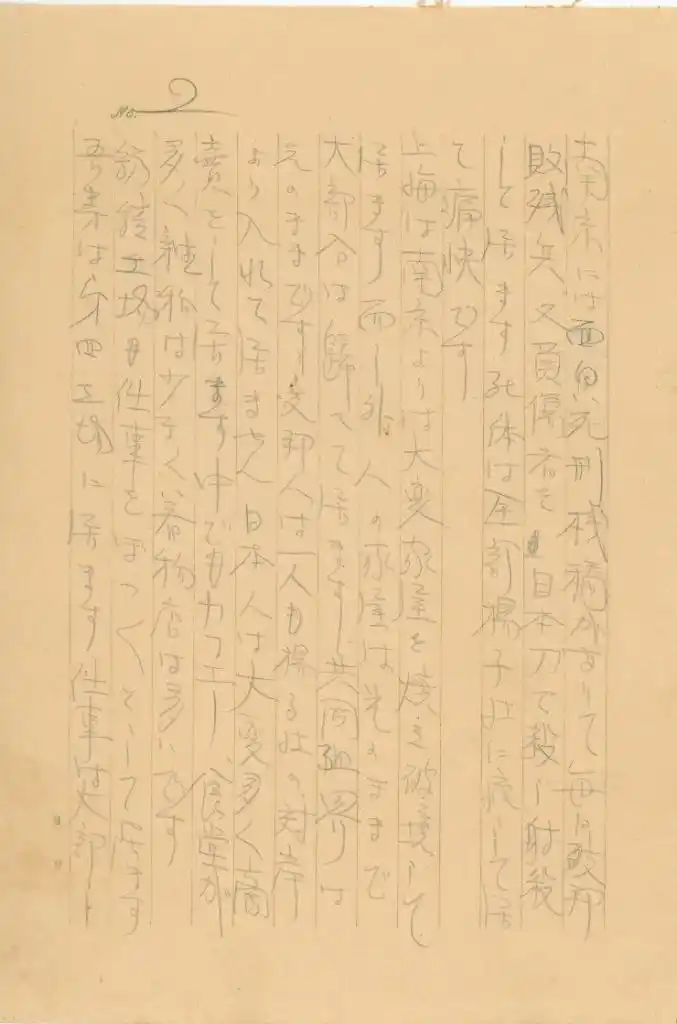 No. 2
南京には面白い死刑桟橋がありて毎日敗残
敗残兵又負傷者を日本刀で殺し射殺
して居ます死体は全部揚子江に流して居
て痛快です
上海は南京よりは大変家屋を焼き破壊して
居ます而し外人の家屋は元のままで
大部分は帰って居ます共同租界りは
元のままです支那人は一人も揚子江の対岸
より入れて居ません日本人は大変多く商
売をして居ます中でもカフエー、食堂が
多く雑貨は少なく着物店は多いです
紡績工場も仕事をぼつ〱として居ます
吾等は第四工場に居ます仕事は大部